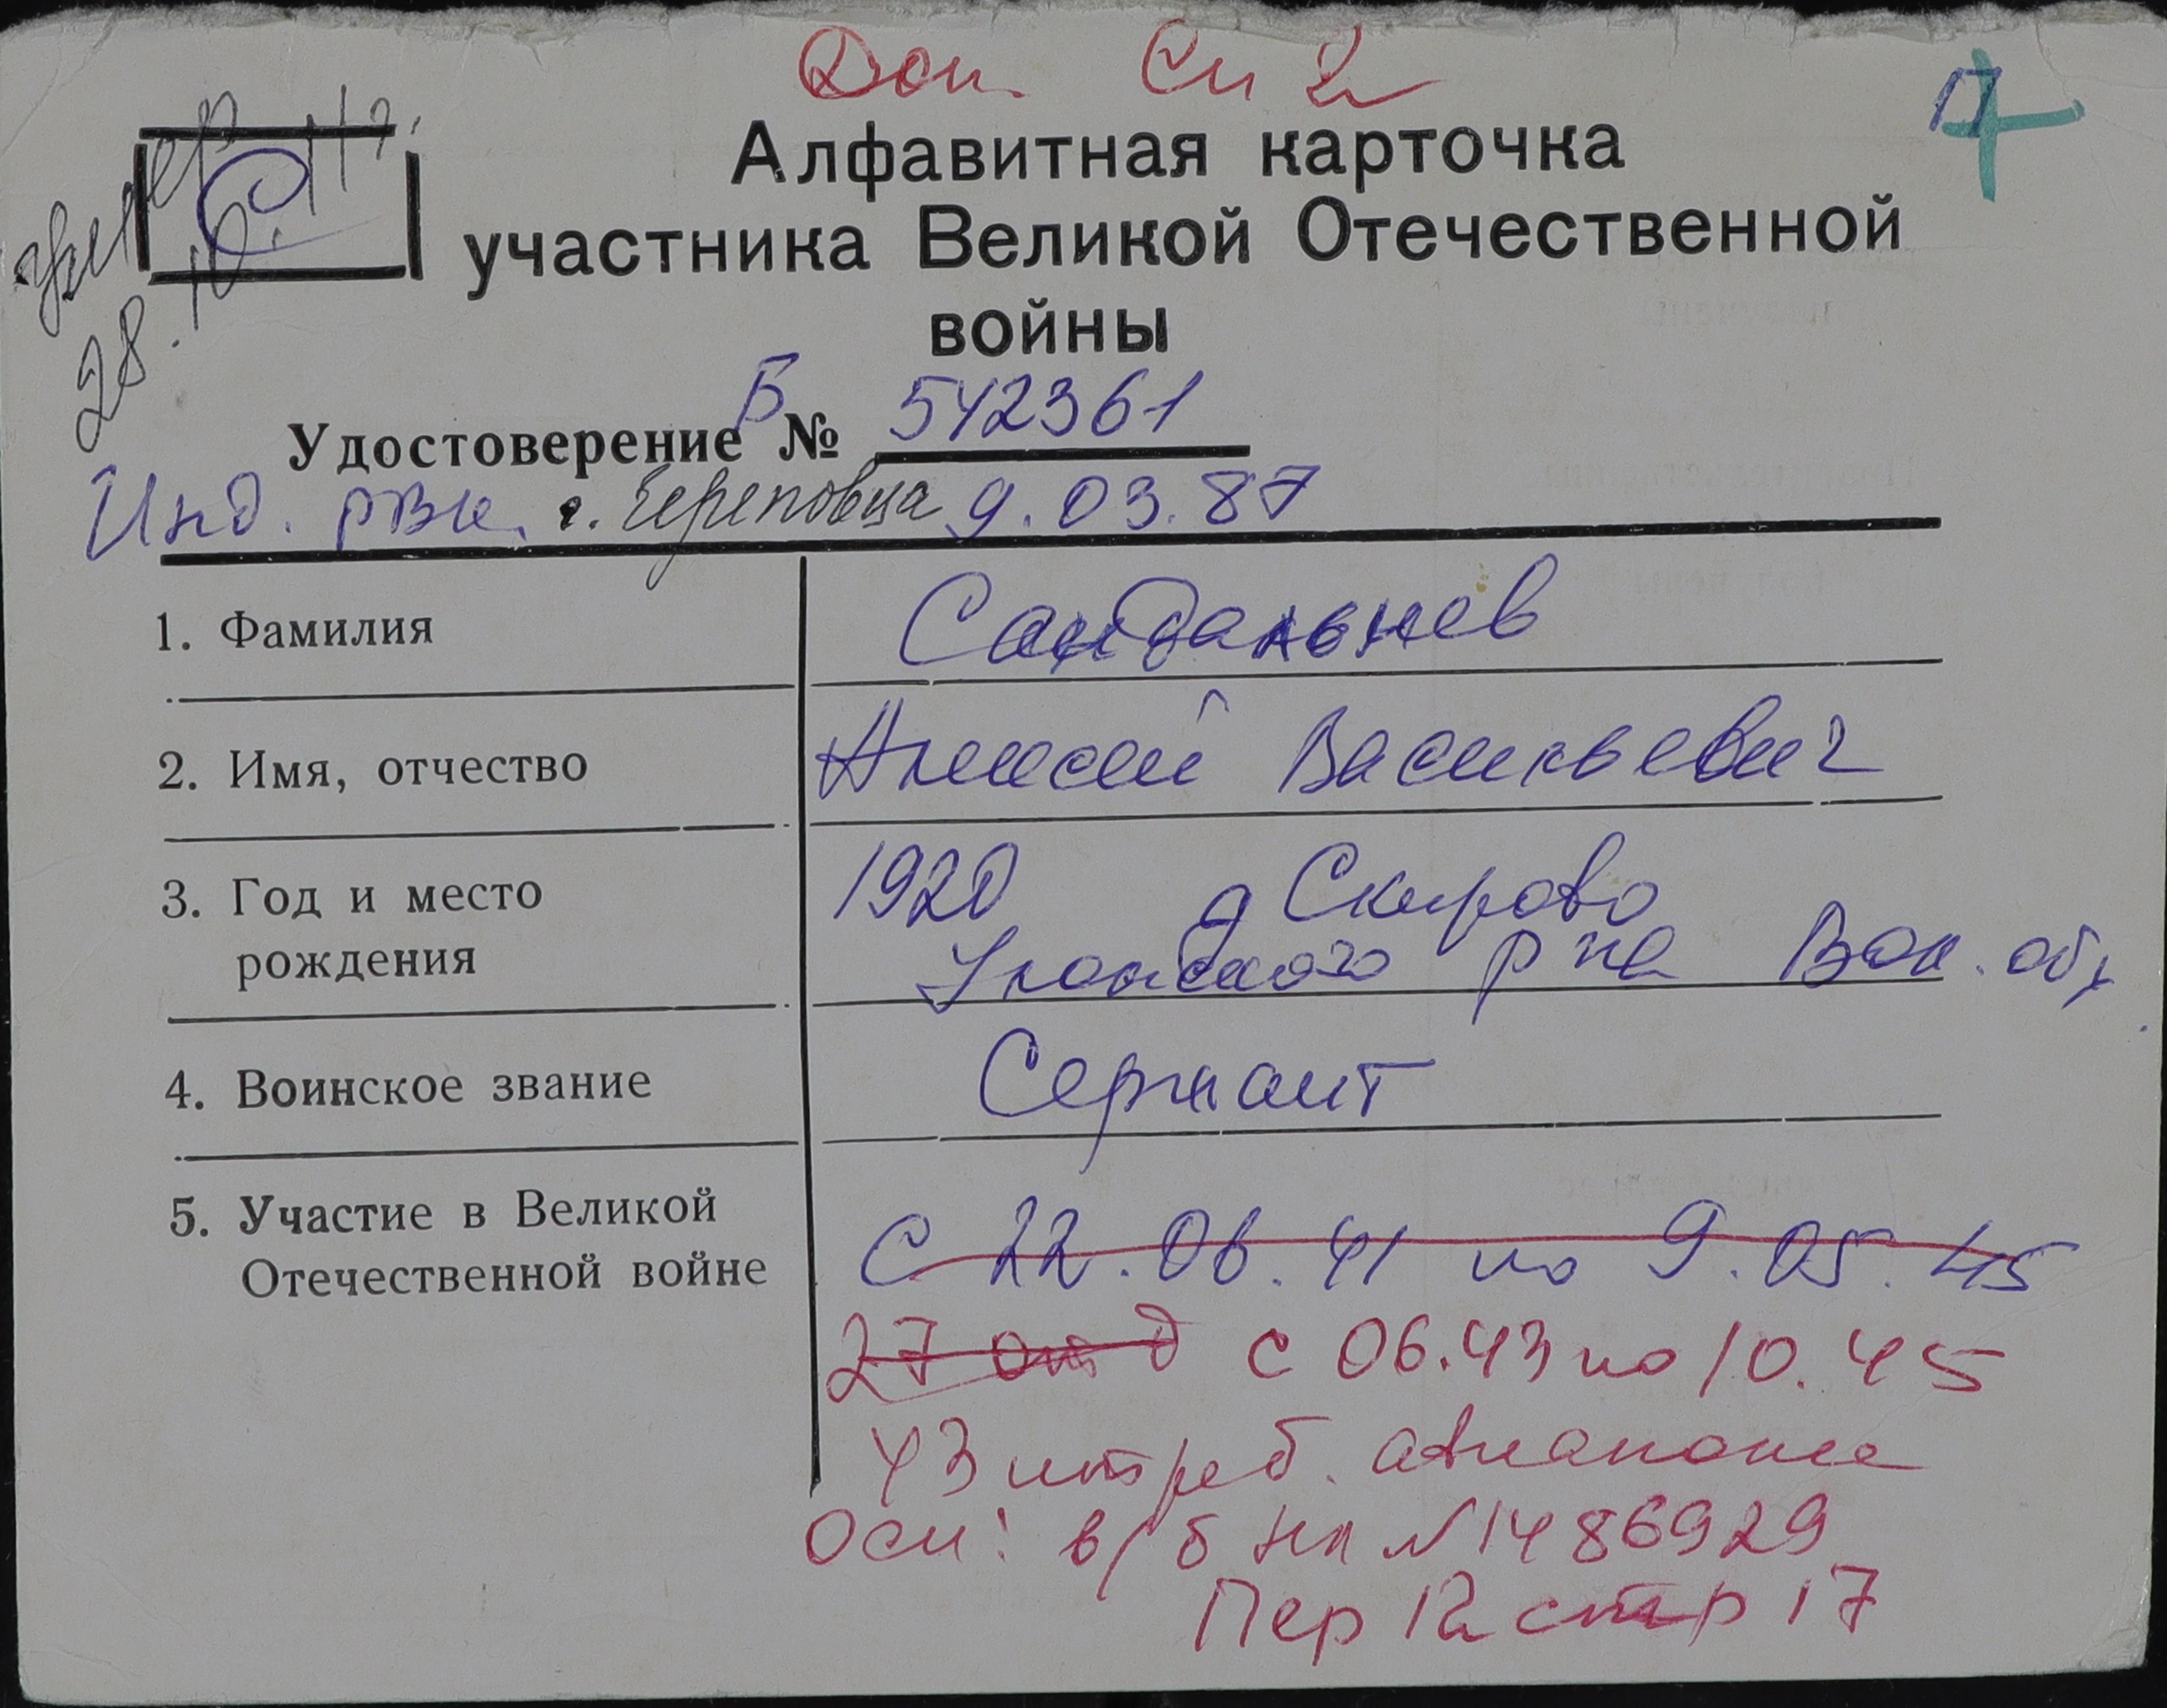 Доп. Сп 2
17
умер 28.10.
С
Алфавитная карточка
участника Великой Отечественной
войны
Удостоверение Б № 542361
Инд. рвк. г. Череповца 9.03.87
1. Фамилия
Сандальнев
2. Имя, отчество
Алексей Васильевич
3. Год и место
рождения
1920 д Скирово
р на Вол. обл
4. Воинское звание
Сержант
5. Участие в Великой
Отечественной войне
С 22.06.41 по 9.05.45
27 с 06.43 по 10.45
43 истреб. авиаполк
Осн: в/б нп №1486929
Пер 12 стр 17